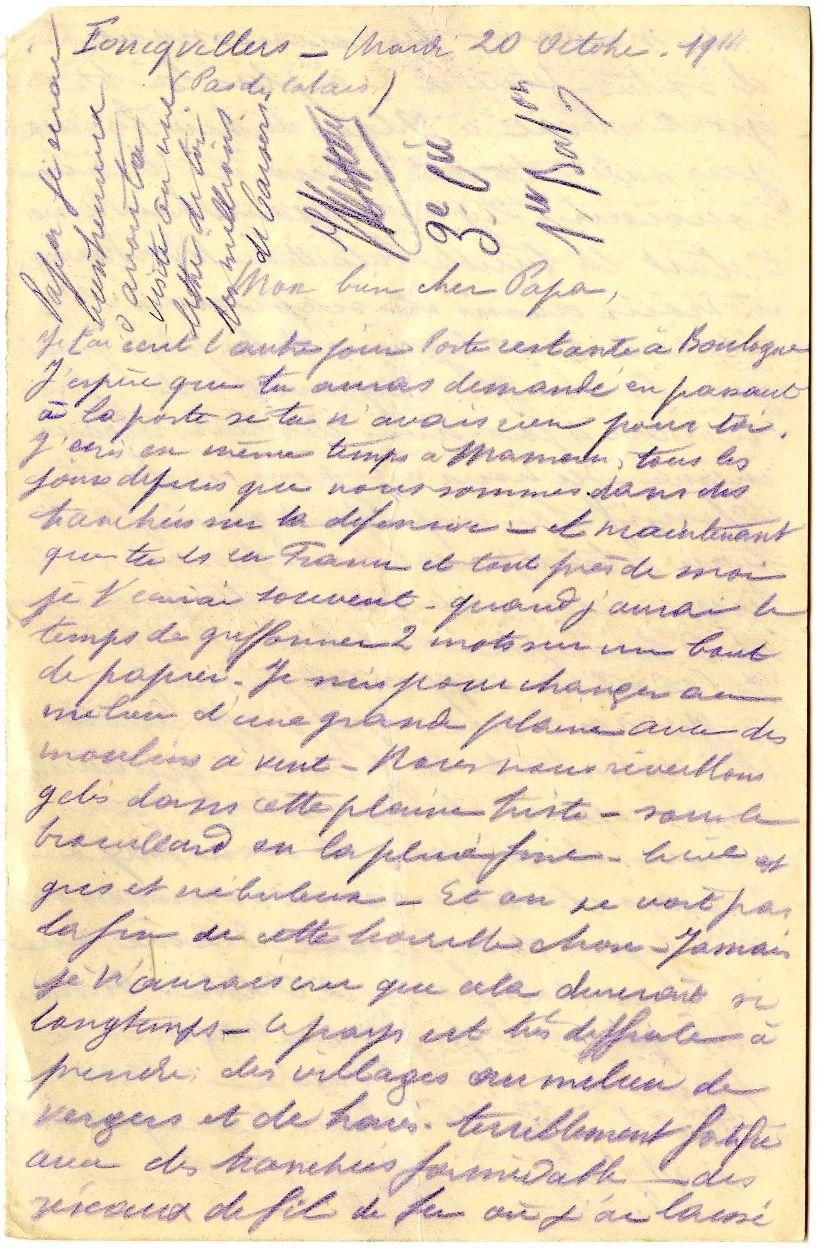 Foncquillers – Mardi 20 Octobre. 1914
(Pas de Calais)
Papa je serai
bien heureux
d'avoir ta
visite ou une
lettre de toi
des millions
de baisers
3e Cie
1er Baton
Mon bien cher Papa,
Je t'ai écrit l'autre jour Poste restante à Boulogne
J'espère que tu auras demandé en passant
à la poste si tu n'avais rien pour toi.
J'écris en même temps à Maman, tous les
jours depuis que nous sommes dans des
tranchées sur la défensive – et maintenant
que tu es en France et tout près de moi
je t'écrirai souvent – quand j'aurai le
temps de griffonner 2 mots sur un bout
de papier – Je suis pour changer au
milieu d'une grande plaine avec des
moulins à vent – Nous nous réveillons
gelés dans cette plaine triste – sous le
brouillard ou la pluie fine – le ciel est
gris et nébuleux – Et on ne voit pas
la fin de cette horrible chose – Jamais
je n'aurais cru que cela durerait si
longtemps – le pays est très difficile à
prendre. des villages au milieu de
vergers et de haies. terriblement fortifié
avec des tranchées formidables – des
réseaux de fil de fer où j'ai laissé